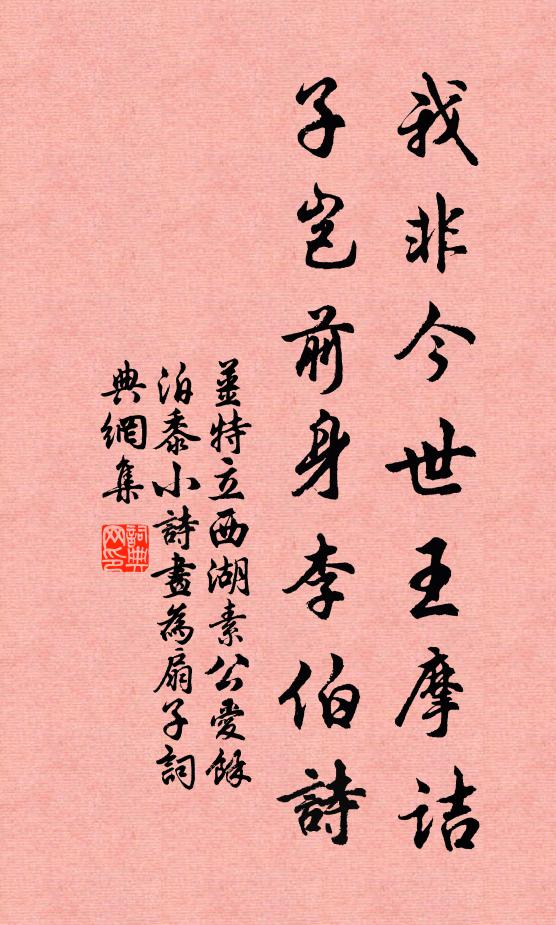 我非今世王摩詰
子岂前身李伯詩
薑特立西湖素公愛餘
泊黍小詩畫為扇子詞
典網集
詞典
网印